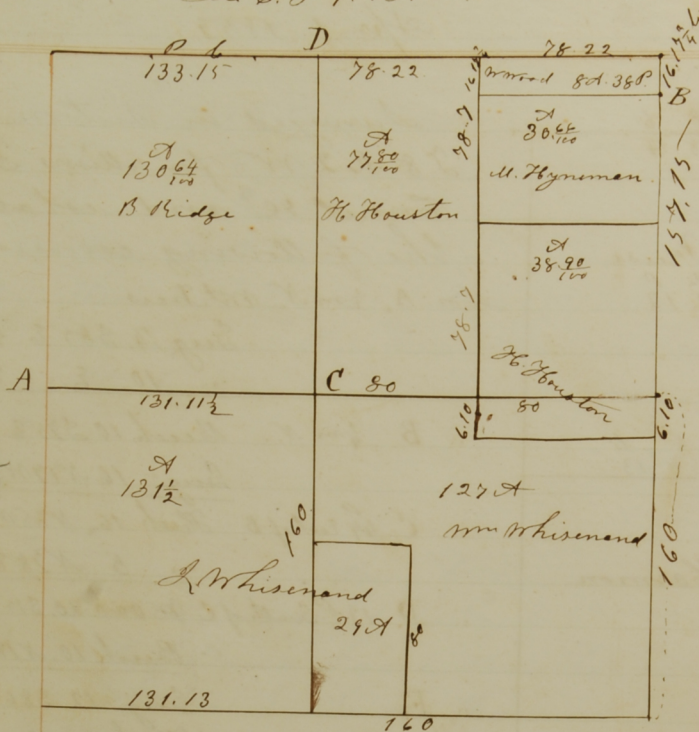 D
133.15
78.22
78.22
W Wood 8A. 38P.
B
A
130 64/100
B Ridge
A
77 80/100
H. Houston
78.7
A
30 66/100
M. Hyneman
157.15
A
38 90/100
78.7
H. Houston
A
C
80
131.11½
80
6.10
6.10
A
131½
127 A
Wm Whisenand
160
160
J Whisenand
29 A
80
131.13
160